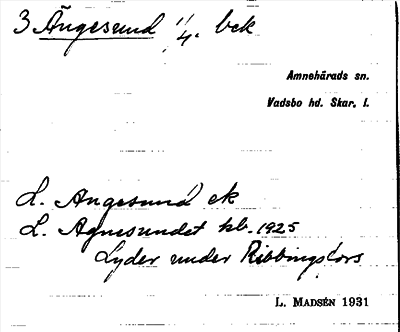 3 Ängesund 1/4. bek
Amnehärads sn.
Vadsbo hd. Skar. l.
L. Angesund ek
L. Agnesundet kb. 1925
Lyder under Ribbingsfors
L. MADSÉN 1931